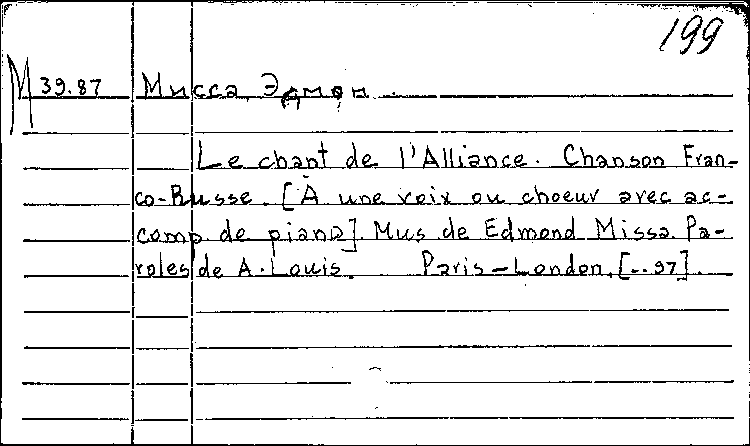 199
М 39.87 Мисса, Эдмон.
Le chant de l'Alliance. Chanson Fran-
co-Russe. [À une voix ou choeur avec ac-
comp de piano]. Mus de Edmond Missa. Pa-
roles de A. Louis. Paris-London. [--97].